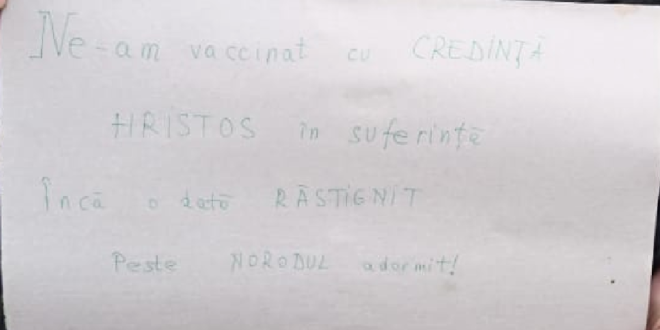 Ne-am vaccinat cu CREDINŢĂ
HRISTOS în suferinţă
Încă o dată RĂSTIGNIT
Peste NORODUL adormit!